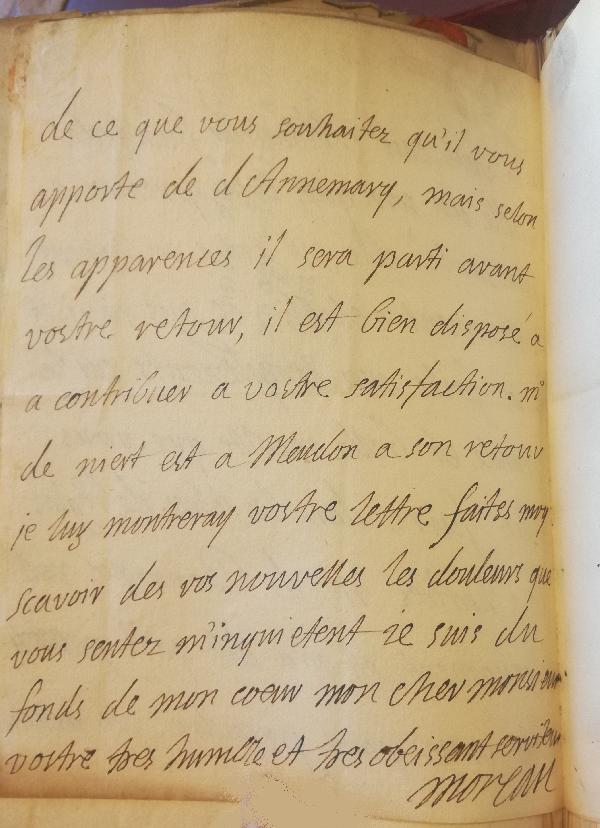 de ce que vous souhaitez qu'il vous
apporte de d'Annemary, mais selon
les apparences il sera parti avant
vostre retour, il est bien disposé a
a contribuer a vostre satisfaction. mr
de niert est a Meudon a son retour
je luy montreray vostre lettre faites moy
scavoir des vos nouvelles les douleurs que
vous sentez m'inquietent ie suis du
fonds de mon coeur mon cher monsieur
vostre tres humble et tres obeissant serviteur
moreau